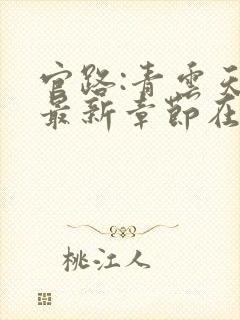 官路:青云天
最新章节在
桃江人